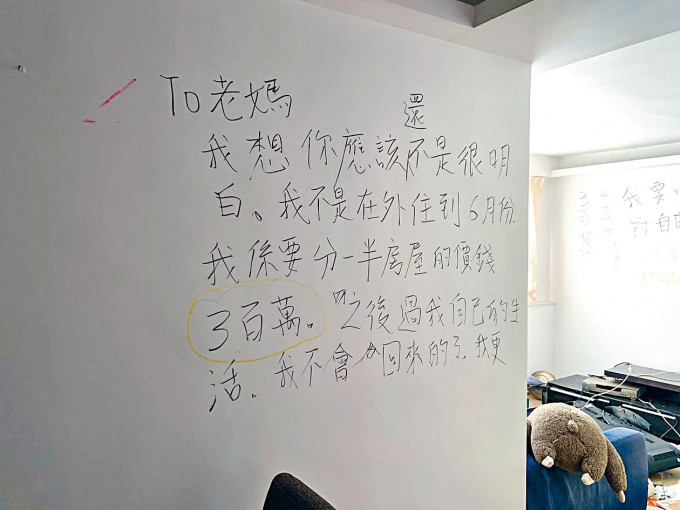 To老媽
我想你應該還不是很明
白。我不是在外住到6月份.
我係要分一半房屋的價錢
3百萬。之後過我自己的生
活. 我不會回來的了. 我更
我要
3百